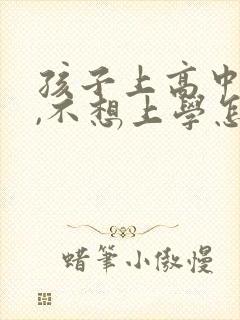 孩子上高中
,不想上學怎
蜡筆小傲慢